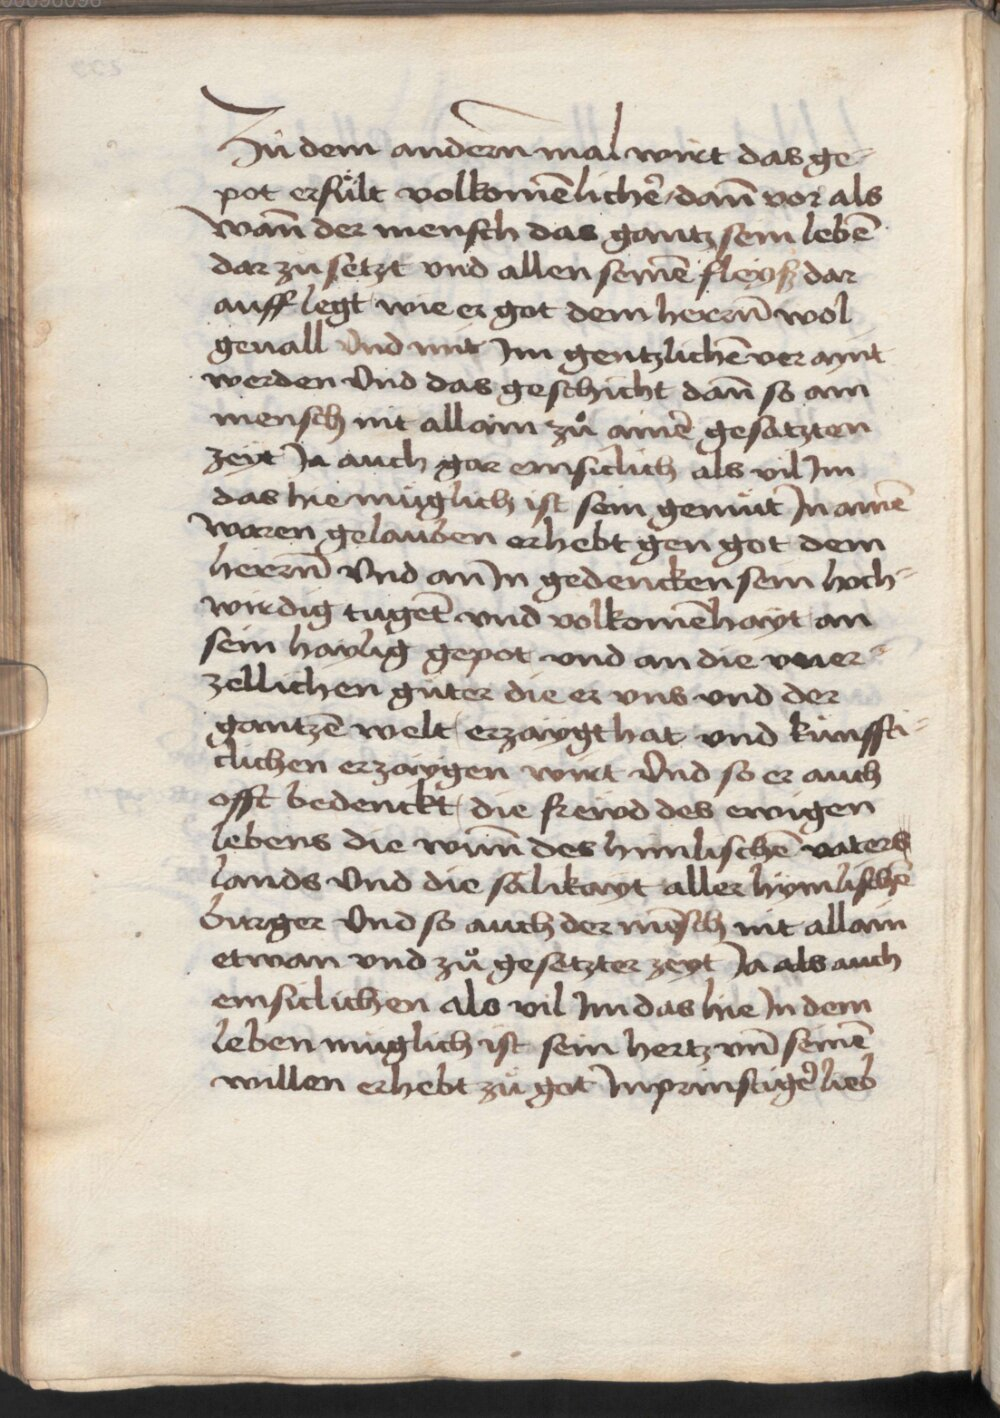 Zů dem andern̄ mal wirt das ge-
pot erfült volkom̄enlicher̄ / dan̄ vor als
wan̄ der mensch das gantz sein lebē
dar zu setzt vnd allen seinē fleysz dar
auff legt wie er got dem herrn̄ wol
geuall Vnd mit Im gentzlichē ver aynt
werden Vnd das geschicht dan̄ so ain
mensch nit allain zů ainer̄ gesatzten
zeyt Ja auch gar emsiclich als vil Im
das hie müglich ist sein gemüt In ainē
waren gelauben erhebt gen got dem
herrn̄ Vnd an In gedencken sein hoch-
wirdig tugēt vnd volkom̄enhayt an
sein haylig gepot vnd an die vner-
zellichen güter die er vns vnd der
gantzē welt erzaygt hat vnd künffti-
clichen erzaygen wirt Vnd so er auch
offt bedenckt die frewd des ewigen
lebens die wun̄ des himlischē vaters
lands Vnd die sälikayt aller hymlischē
burger Vnd so auch der mēsch nit allain
etwan vnd zů gesetzter zeyt Ja als auch
emsiclichen als vil Im das hie In dem
leben müglich ist sein hertz vn̄ seinē
willen erhebt zů got In prinstiger̄ lieb